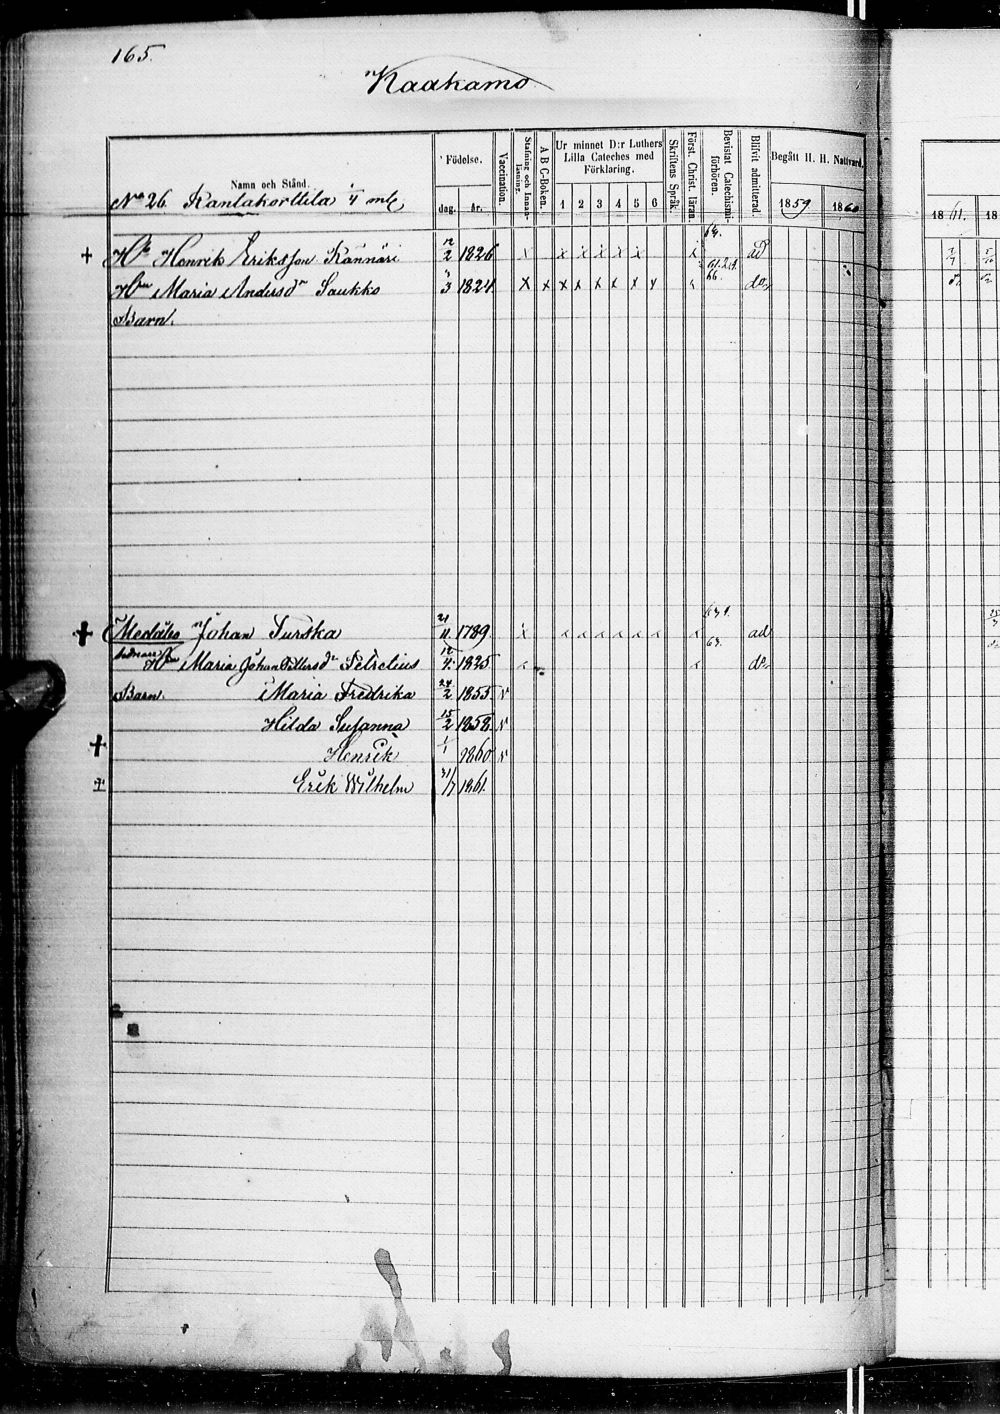 165.
Kaakamo
Namn och Stånd.
Födelse.
dag. år.
Vaccination.
Stafning och Innanläsning.
A B C-Boken.
Ur minnet D:r Luthers Lilla Cateches med Förklaring.
1 2 3 4 5 6
Skriftens Språk.
Först. Christ. läran.
Bevistat Catechismiförhören.
Blifvit admitterad.
Begått H. H. Nattvard.
1859 1860
18 61. 18
No 26 Rantakorttila
+ Henrik Eriksson Kännäri 12/2 1826 x x x x x x x 64. ad
Maria Andersdr Saukko 3/3 1824 x x x x x x x x 66. do
Barn.
+ Johan Turska 21/11 1789. x x x x x x x x ad
Maria Johan Pettersdr Petrelius 12/4 1825 x 63. x do
Barn. Maria Fredrika 24/2 1855. v
Hilda Susanna 15/2 1858. v
+ Henrik 1/1 1860 v
+ Erik Wilhelm 31/7 1861.